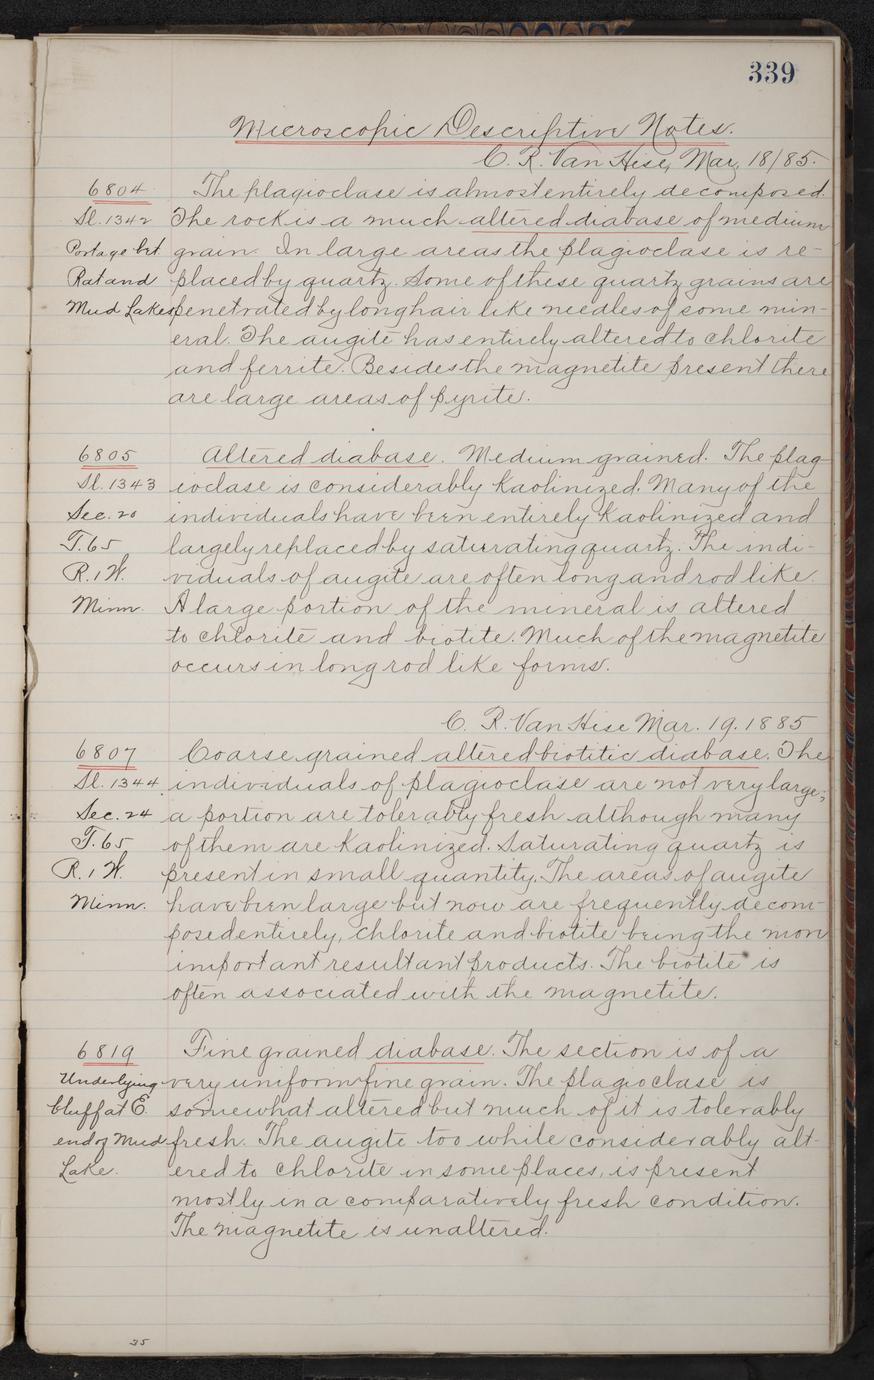 339
Microscopic Descriptive Notes.
C. R. Van Hise, Mar. 18/85.
6804 The plagioclase is almost entirely decomposed.
Sl. 1342 The rock is a much altered diabase of medium
Portage bet. grain. In large areas the plagioclase is re-
Rat and placed by quartz. Some of these quartz grains are
Mud Lakes penetrated by long hair like needles of some min-
eral. The augite has entirely altered to chlorite
and ferrite. Besides the magnetite present there
are large areas of pyrite.
6805 Altered diabase. Medium grained. The plag-
Sl. 1343 ioclase is considerably kaolinized. Many of the
Sec. 20 individuals have been entirely kaolinized and
T. 65 largely replaced by saturating quartz. The indi-
R. 1 W. viduals of augite are often long and rod like.
Minn. A large portion of the mineral is altered
to chlorite and biotite. Much of the magnetite
occurs in long rod like forms.
C. R. Van Hise Mar. 19. 1885
6807 Coarse grained altered biotitic diabase. The
Sl. 1344. individuals of plagioclase are not very large;
Sec. 24 a portion are tolerably fresh although many
T. 65 of them are kaolinized. Saturating quartz is
R. 1 W. present in small quantity. The areas of augite
Minn. have been large but now are frequently decom-
posed entirely, chlorite and biotite being the more
important resultant products. The biotite is
often associated with the magnetite.
6819 Fine grained diabase. The section is of a
Underlying very uniform fine grain. The plagioclase is
bluff at E. somewhat altered but much of it is tolerably
end of Mud fresh. The augite too while considerably alt-
Lake. ered to chlorite in some places, is present
mostly in a comparatively fresh condition.
The magnetite is unaltered.
35